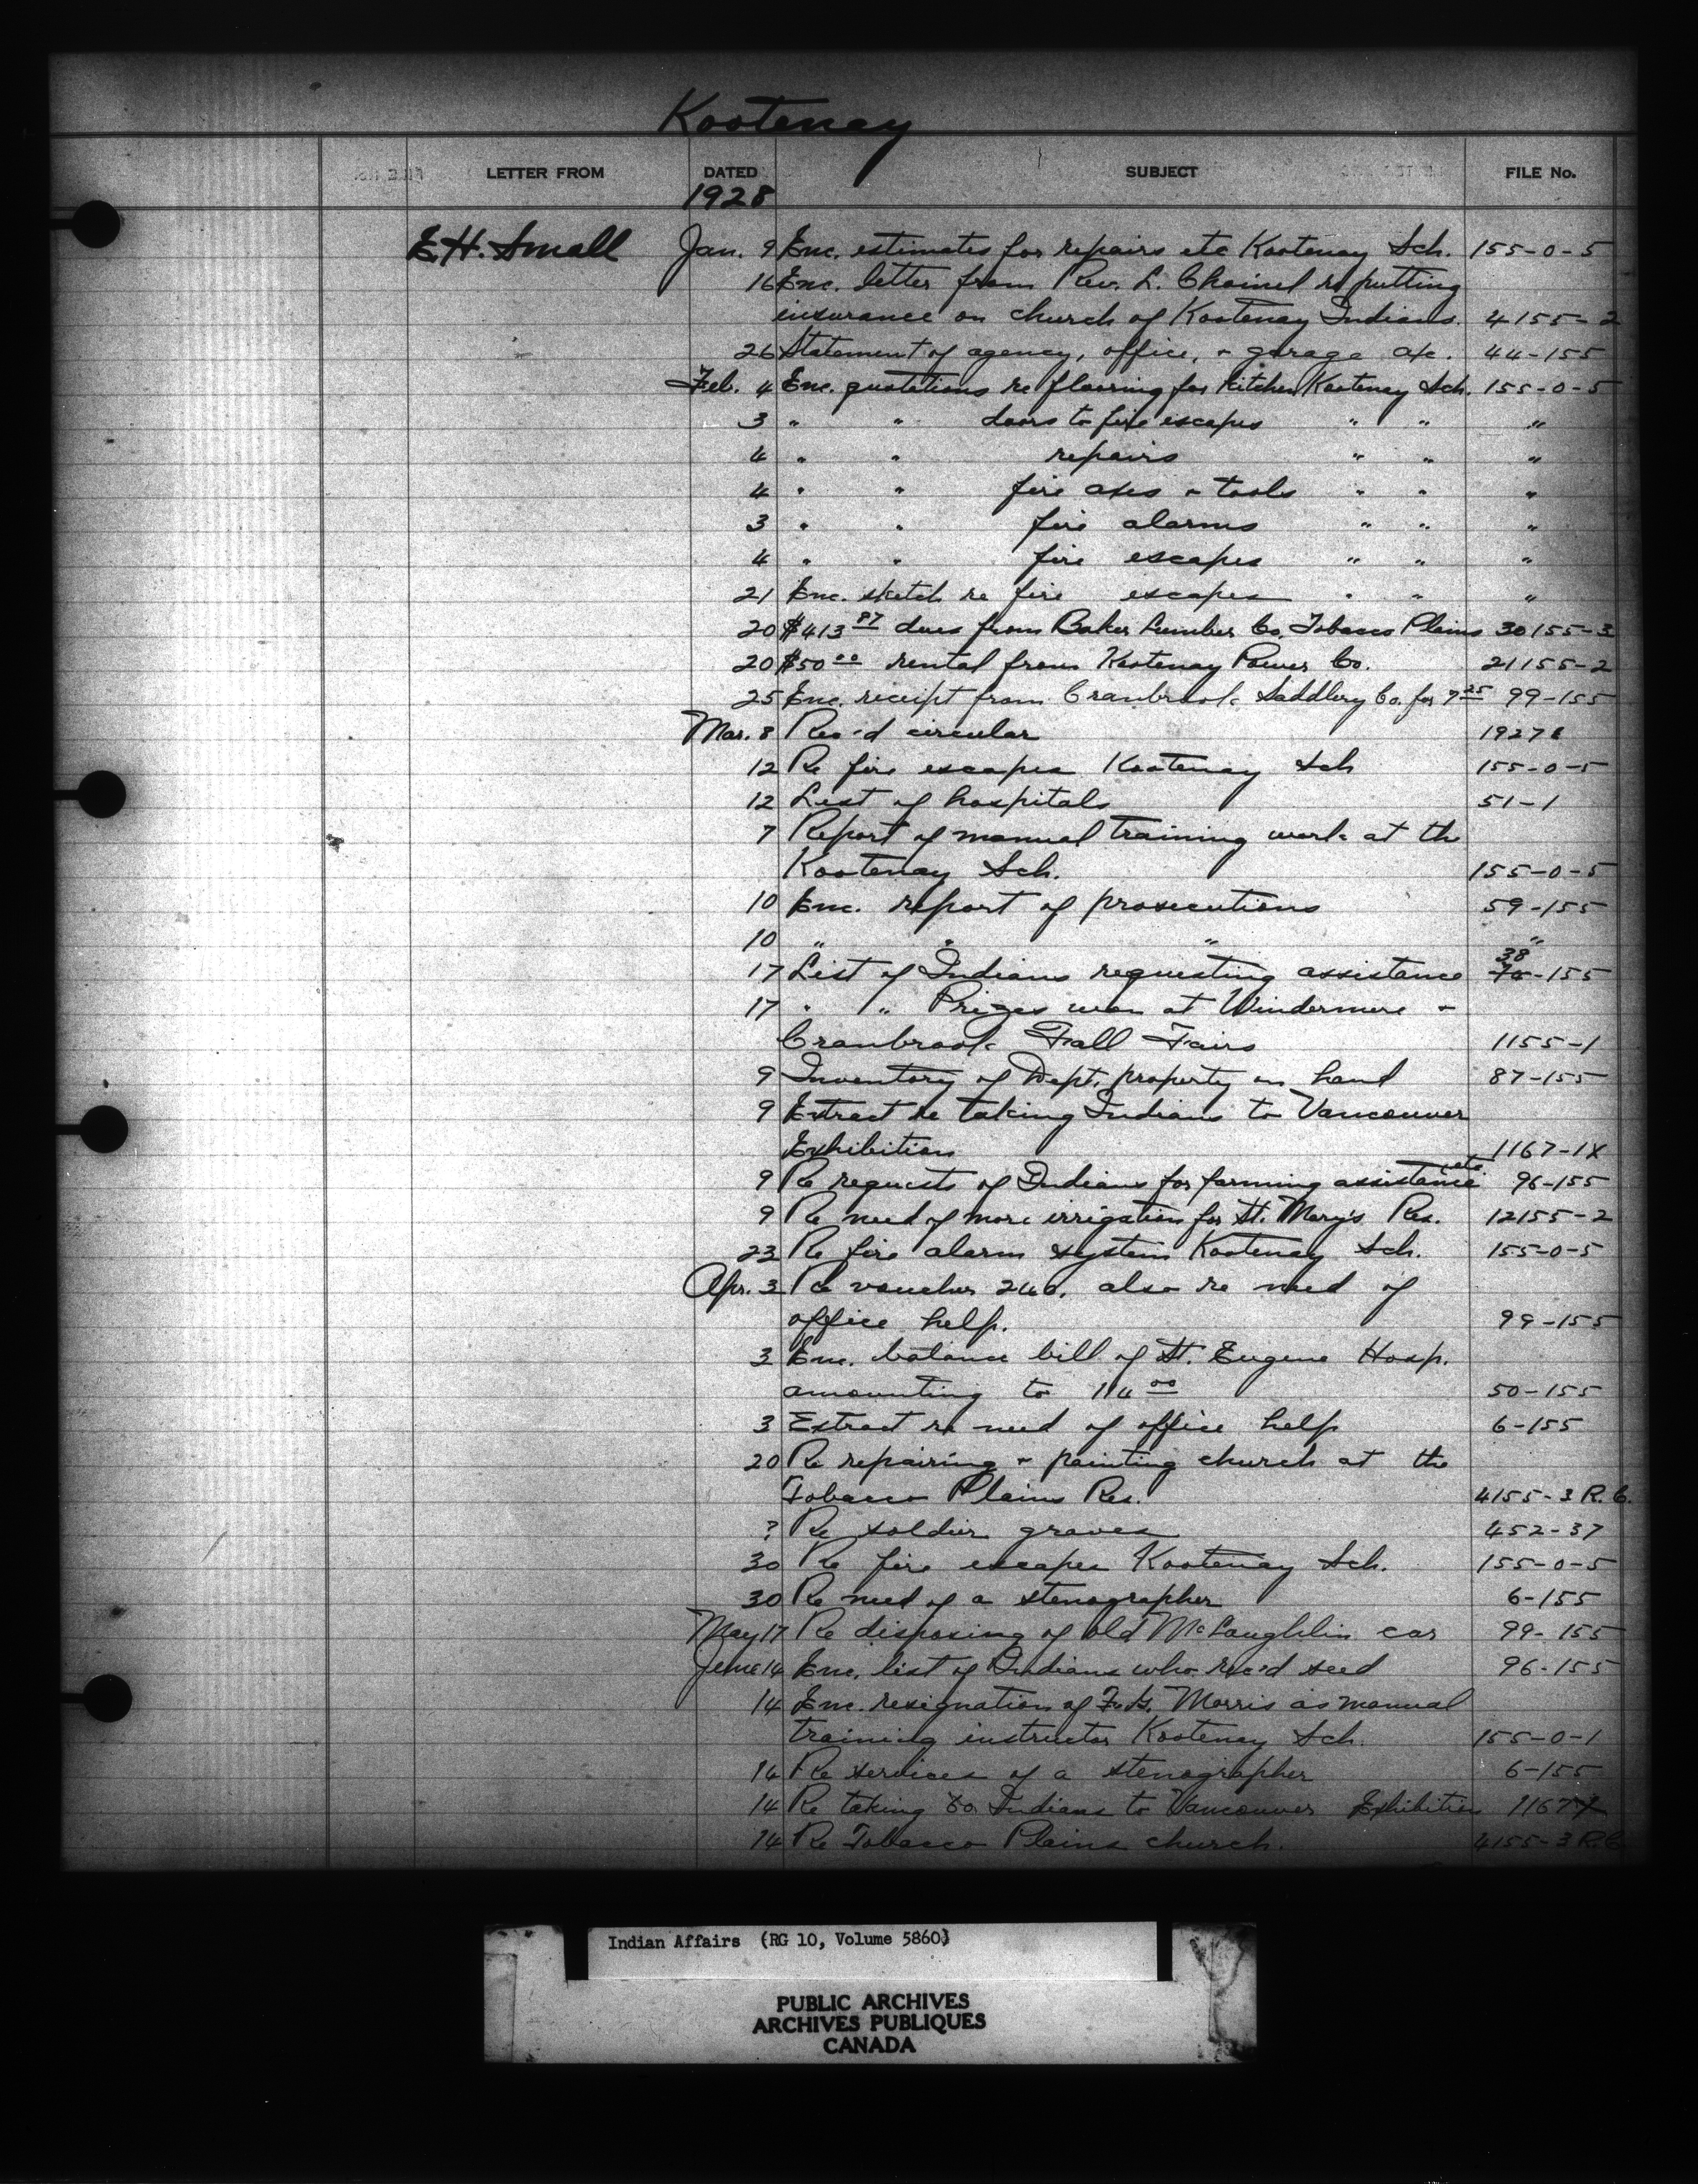 Kootenay
LETTER FROM DATED SUBJECT FILE No.
1928
E.H. Small Jan. 9 Enc. estimates for repairs etc Kootenay Sch. 155-0-5
16 Enc. letter from Rev. L. Choinel re putting
insurance on church of Kootenay Indians. 4155-2
26 Statement of agency, office, + garage a/c. 44-155
Feb. 4 Enc. quotations re flooring for kitchen Kootenay Sch. 155-0-5
3 " " doors to fire escapes " " "
4 " " repairs " " "
4 " " fire axes + tools " " "
3 " " fire alarms " " "
4 " " fire escapes " " "
21 Enc. sketch re fire escapes " " "
20 $413 87 dues from Baker Lumber Co. Tobacco Plains 30155-3
20 $50 00 rental from Kootenay Power Co. 21155-2
25 Enc. receipt from Cranbrook Saddlery Co. for 7 25 99-155
Mar. 8 Rec'd circular 1927
12 Re fire escapes Kootenay Sch 155-0-5
12 List of hospitals 51-1
7 Report of manual training work at the
Kootenay Sch. 155-0-5
10 Enc. report of prosecutions 59-155
10 " " " "
17 List of Indians requesting assistance 38-155
17 " " Prizes won at Windermere +
Cranbrook Fall Fairs 1155-1
9 Inventory of Dept. property on hand 87-155
9 Extract re taking Indians to Vancouver
Exhibition 1167-1X
9 Re requests of Indians for farming assistance etc 96-155
9 Re need of more irrigation for St. Mary's Res. 12155-2
23 Re fire alarm system Kootenay Sch. 155-0-5
Apr. 3 Re voucher 246. also re need of
office help. 99-155
3 Enc. balance bill of St. Eugene Hosp.
amounting to 114 00 50-155
3 Extract re need of office help 6-155
20 Re repairing + painting church at the
Tobacco Plains Res. 4155-3 R.C.
? Re soldier graves 452-37
30 Re fire escapes Kootenay Sch. 155-0-5
30 Re need of a stenographer 6-155
May 17 Re disposing of old McLaughlin car 99-155
June 14 Enc. list of Indians who rec'd seed 96-155
14 Enc. resignation of F.G. Morris as manual
training instructor Kootenay Sch. 155-0-1
14 Re services of a stenographer 6-155
14 Re taking Indians to Vancouver Exhibition
14 Re Tobacco Plains church. 4155-3 R.C.
Indian Affairs (RG 10, Volume 5860)
PUBLIC ARCHIVES
ARCHIVES PUBLIQUES
CANADA